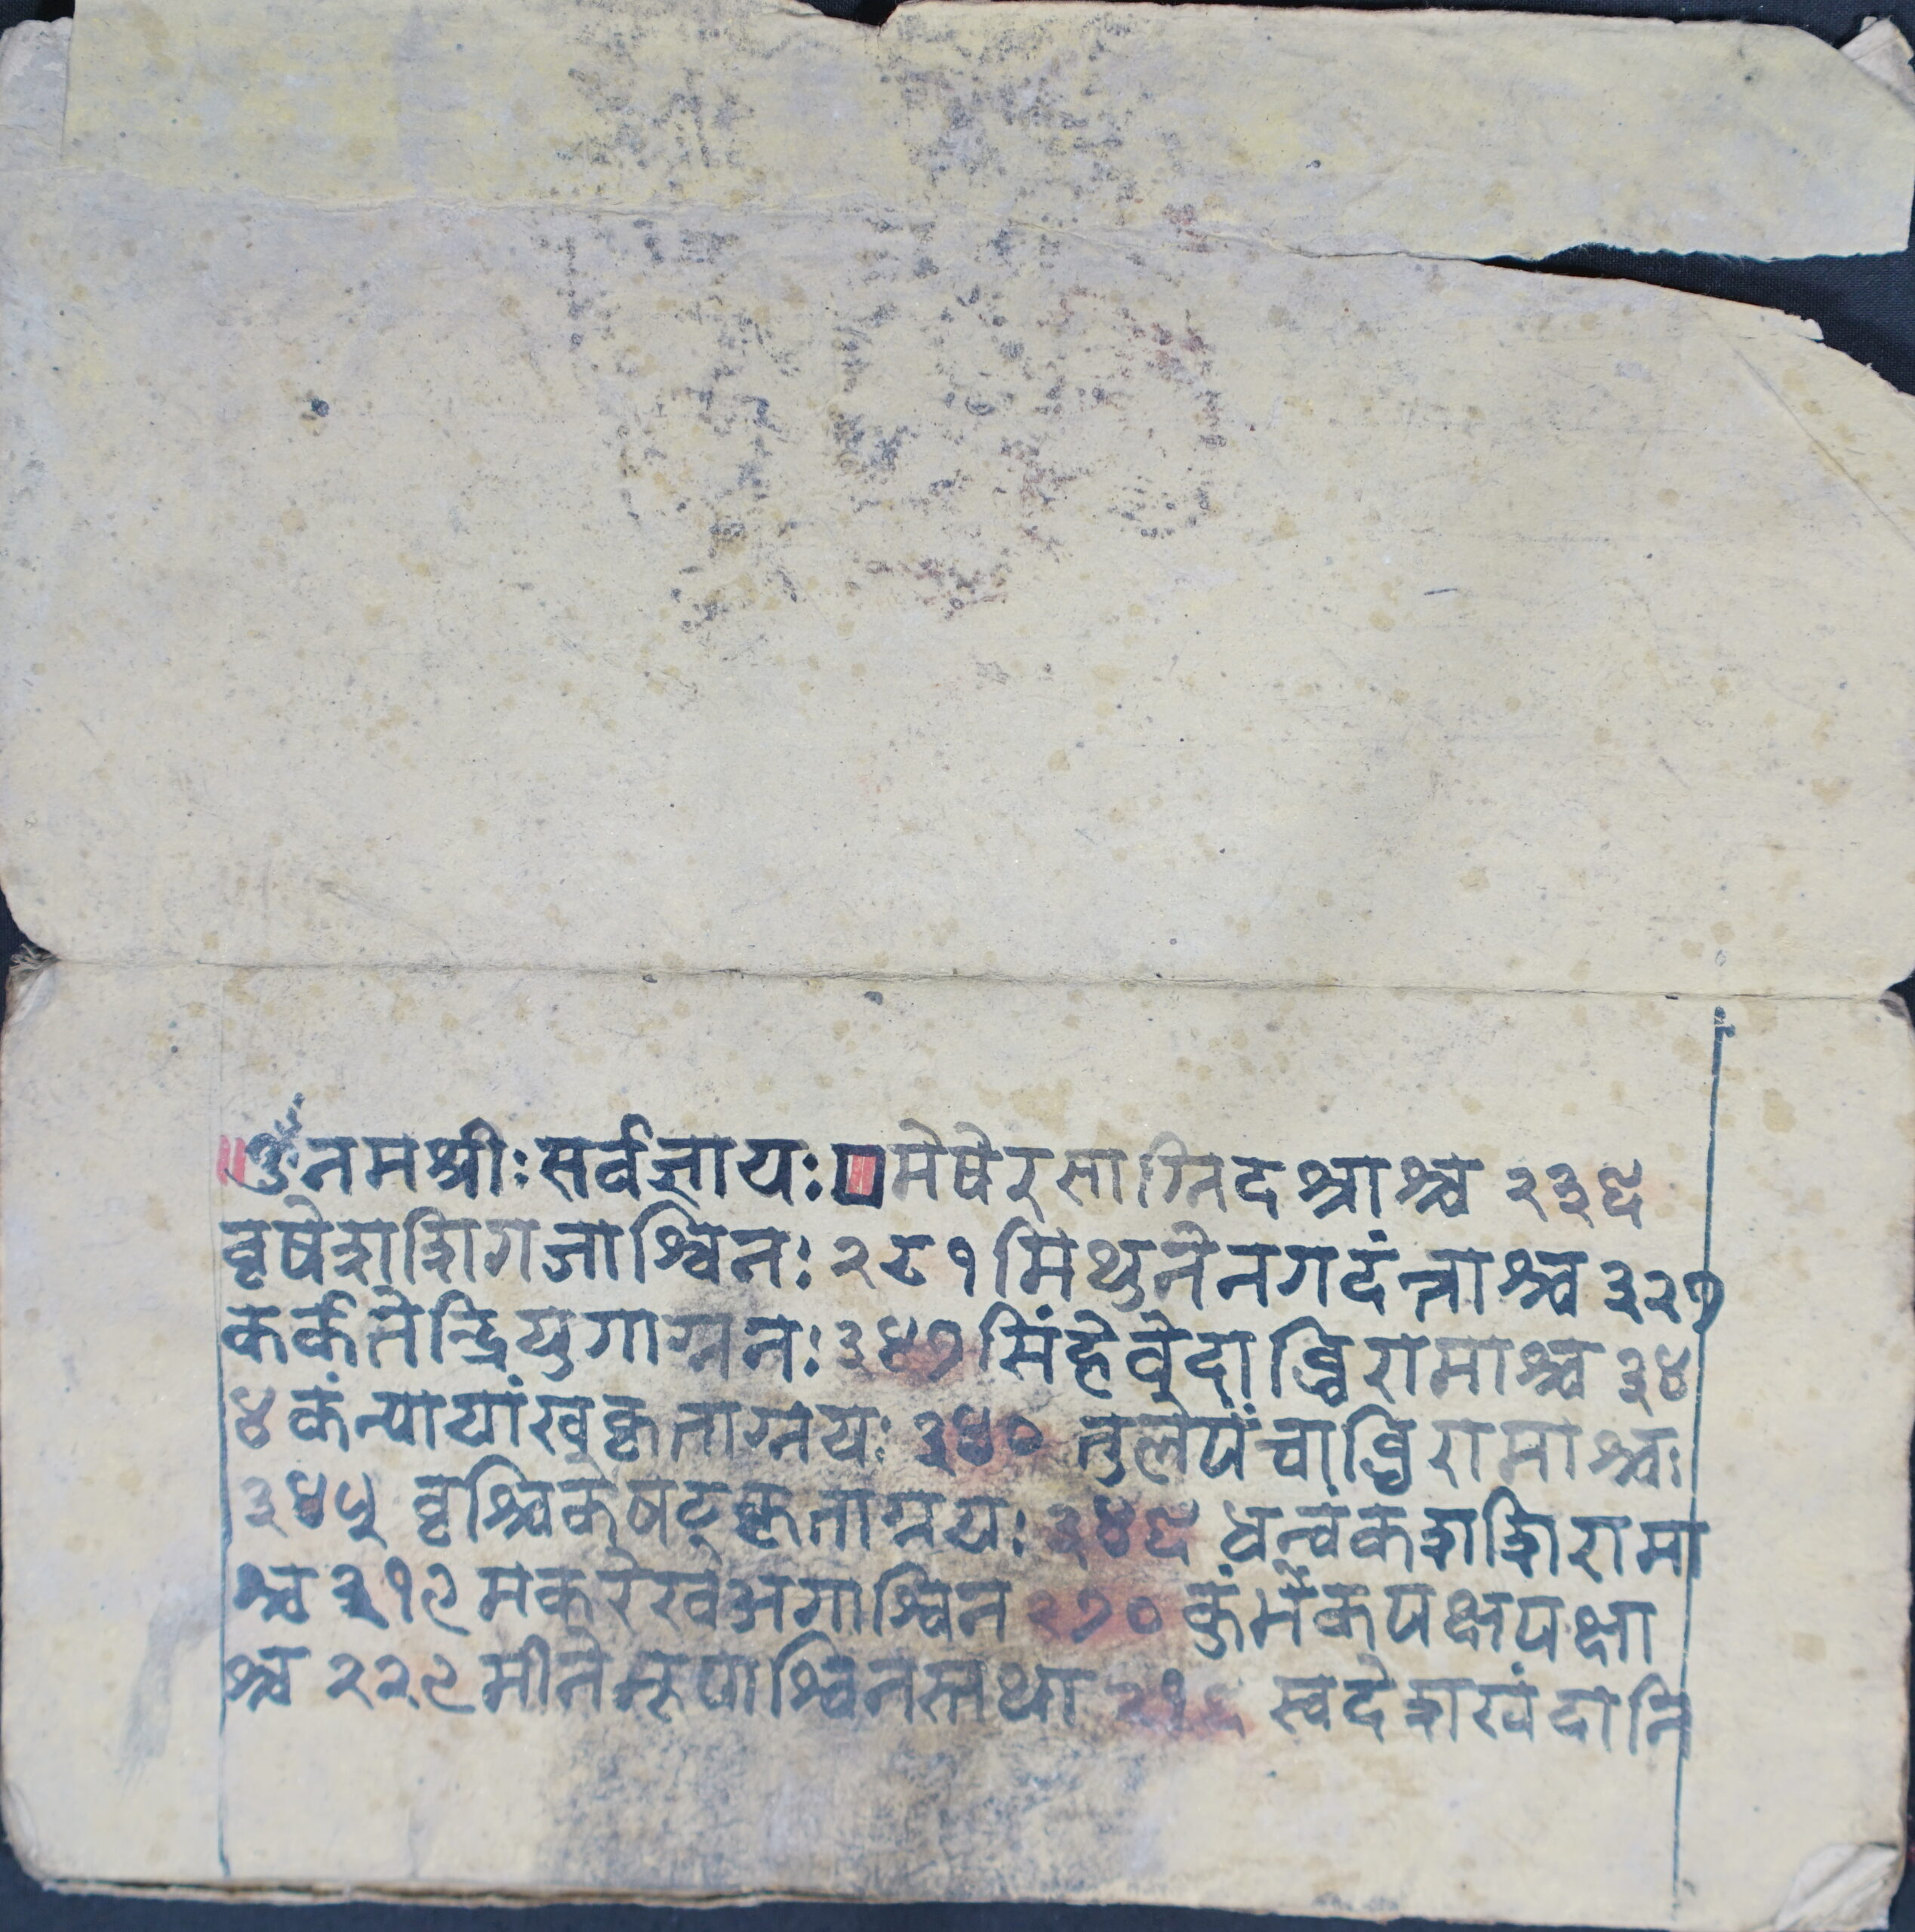 ॥ॐ नमश्रीः सर्वज्ञायः मेषे रसाग्निदश्राश्च २३६
वृषे शशिगजाश्विनः २८१ मिथुने नगदंन्त्राश्च ३२७
कर्कतेन्द्रियुगाग्नन: ३४७ सिंहे वेदाब्धिरामाश्च ३४
४ कंन्यायां खकृताग्नयः ३४० तुले पंचाब्धिरामाश्चः
३४५ वृश्चिक षट्कृताग्नयः ३४६ धन्वंकशशिरामा
श्च ३१९ मकरे खअगाश्विन २७० कुंभेकपक्षपक्षा
श्च २२९ मीने भूपाश्विनस्तथा २१६ स्वदेशखंदानि